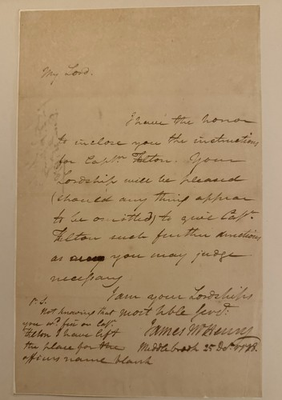 My Lord.
I have the honor
to inclose you the instructions
for Capt. Felton. Your
Lordship will be pleased
(should any thing appear
to be omitted) to give Capt.
Felton such further directions
as you may judge
necessary
I am your Lordships
most hble Servt.
James McHenry
Middlebrook 25 Decr
P.S.
Not knowing but
you wd. fix on Capt.
Felton I have left
the place for the
officers name blank